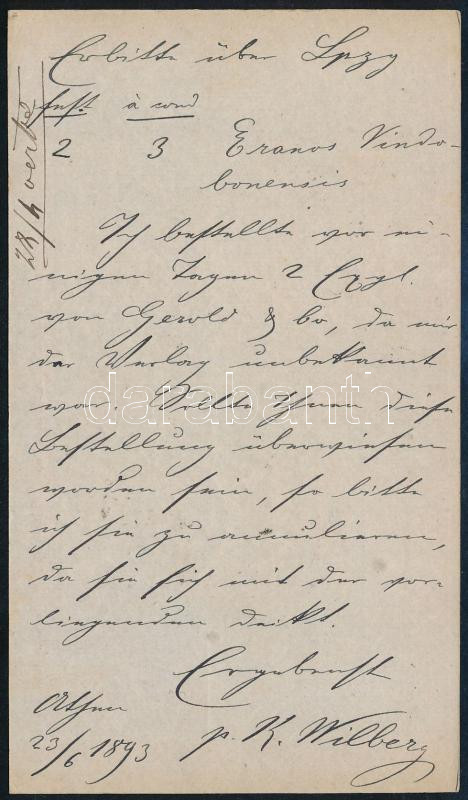 Erbitte über Lpzg
fest à cond
2 3 Eranos Vindo-
bonensis
Ich bestellte vor ei-
nigen Tagen 2 Expl.
von Gerold & Co, da mir
der Verlag unbekannt
war. Sollte Ihnen diese
Bestellung überwiesen
worden sein, so bitte
ich sie zu annulieren,
da sie sich mit der vor-
liegenden deckt.
Ergebenst
Athen
23/6 1893 p. K. Wilberg
28/6
darabanth